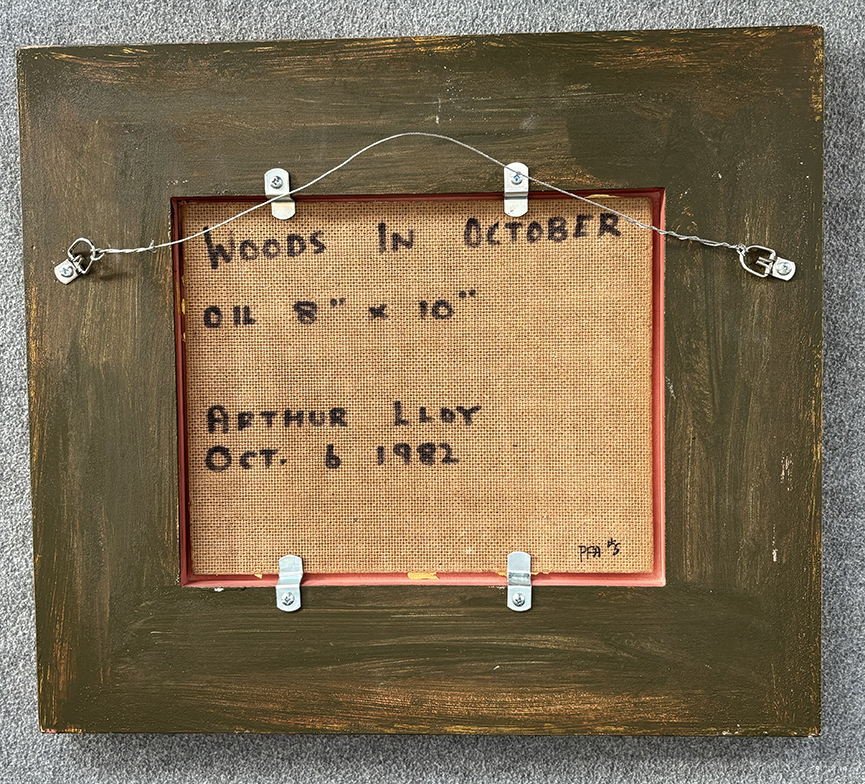 WOODS IN OCTOBER
OIL 8" x 10"
ARTHUR LLOY
OCT. 6 1982
PFA #5